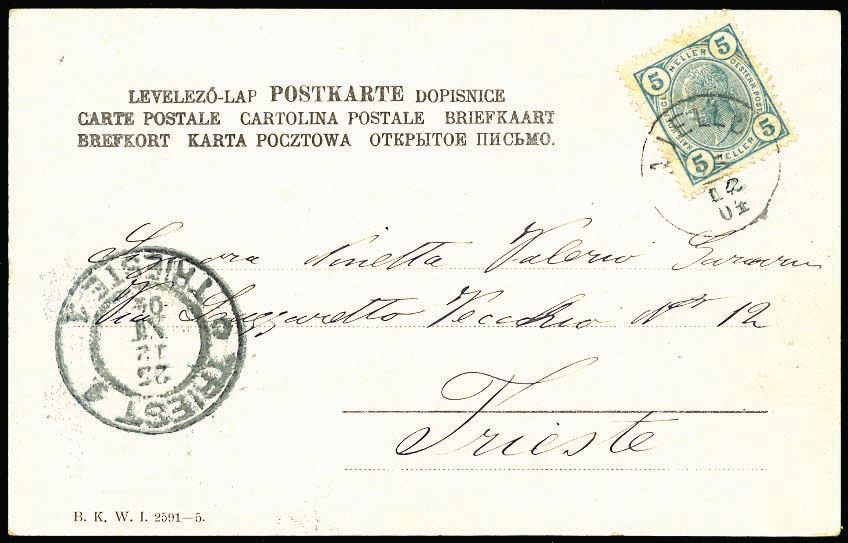 LEVELEZŐ-LAP POSTKARTE DOPISNICE
CARTE POSTALE CARTOLINA POSTALE BRIEFKAART
BREFKORT KARTA POCZTOWA ОТКРЫТОЕ ПИСЬМО.
5 HELLER 5
OESTERR. POST
5 HELLER 5
12
04
Signora Ninetta Valerio
Via Lazzaretto Vecchio No 12
Trieste
TRIEST TRIESTE 1
25
12
04
B. K. W. I. 2591—5.